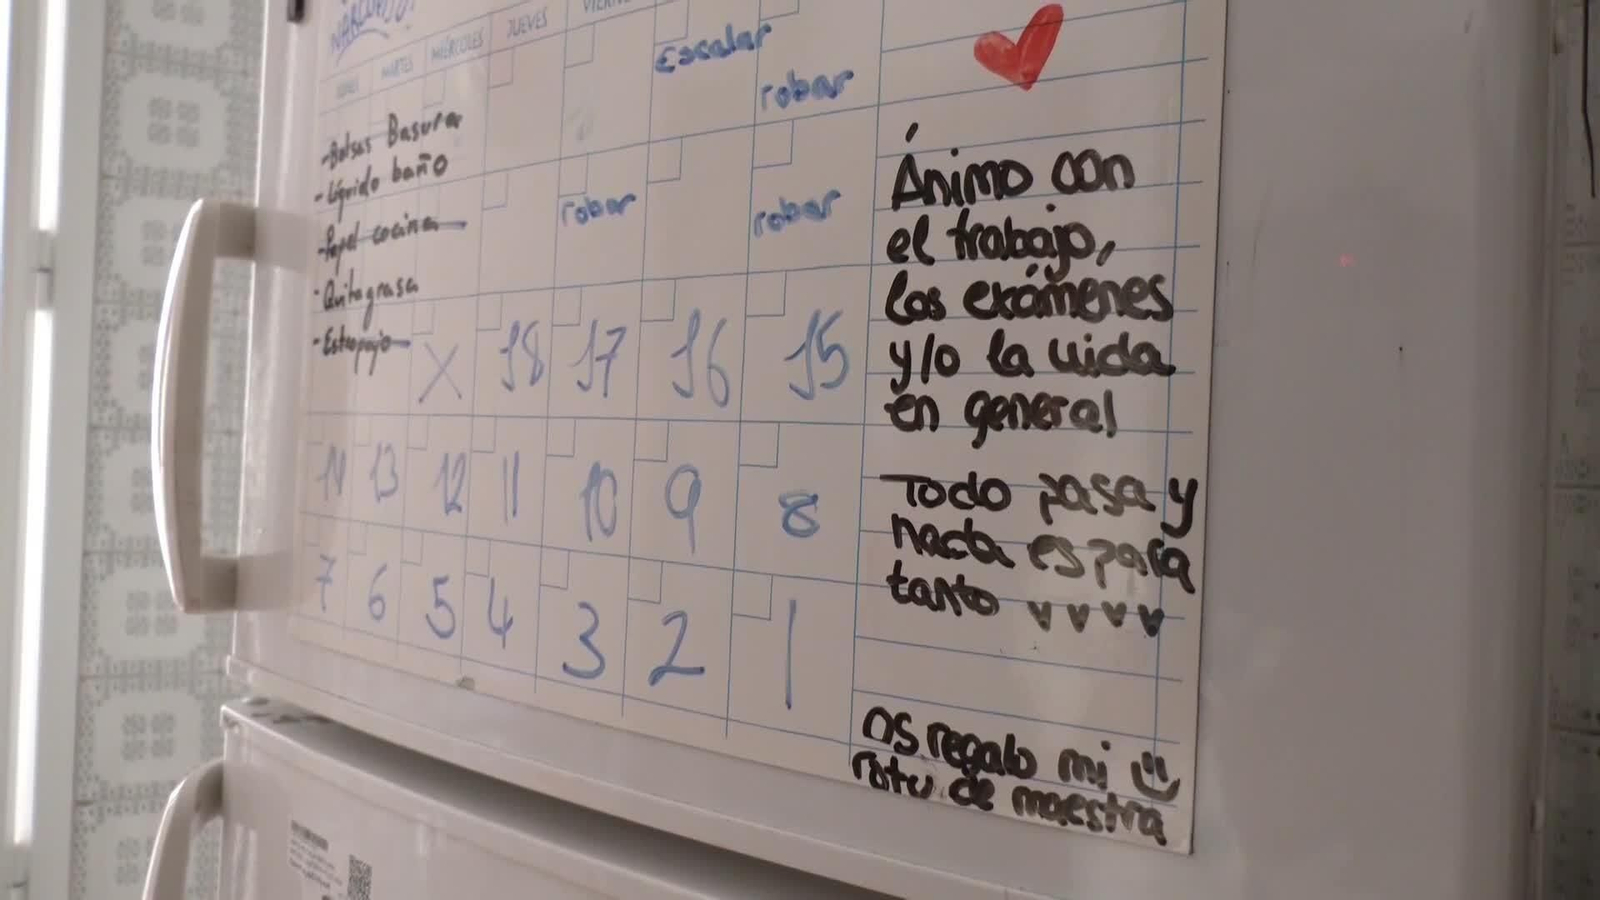 NARCOPISO!
LUNES MARTES MIÉRCOLES JUEVES
Escalar
robar
-Bolsas Basura
-Líquido baño
-Papel cocina
-Quitagrasa
-Estropajo
robar robar
X 18 17 16 15
14 13 12 11 10 9 8
7 6 5 4 3 2 1
Ánimo con
el trabajo,
los exámenes
y/o la vida
en general
Todo pasa y
nada es para
tanto
os regalo mi
rotu de maestra